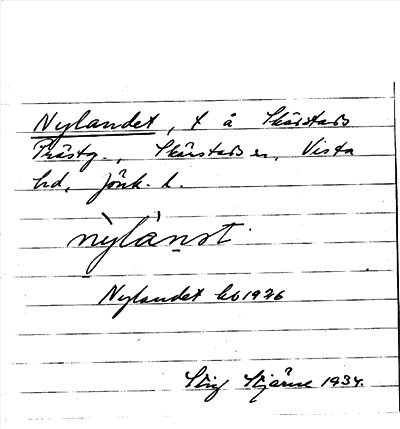 Nylandet, t å Skärstads
Prästg., Skärstads sn, Vista
hd, Jönk. l.
nỳlánst
Nylandet hb 1926
Stig Stjärne 1934.